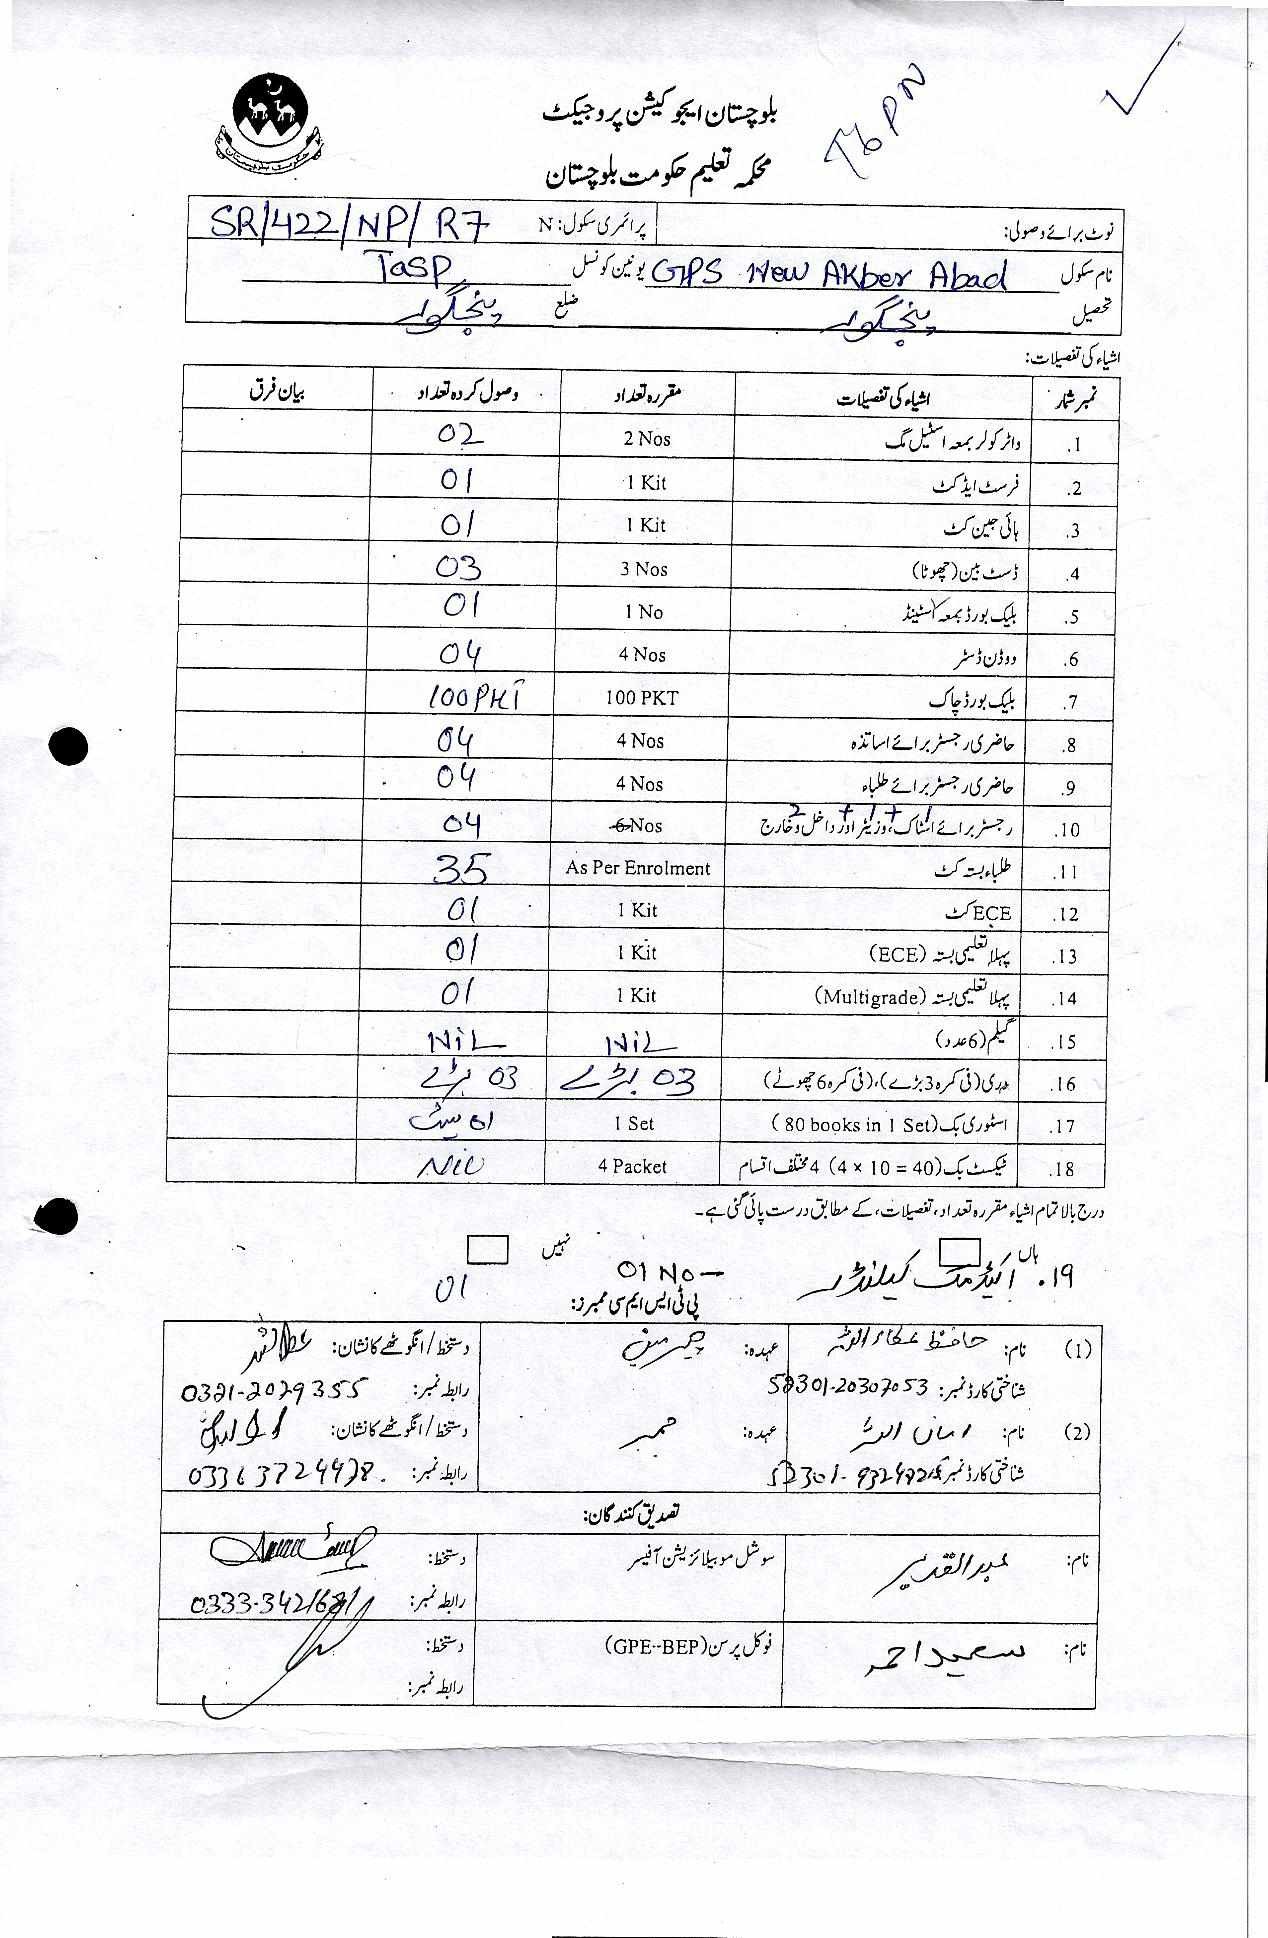 بلوچستان ایجوکیشن پروجیکٹ
محکمہ تعلیم حکومت بلوچستان
نوٹ برائے وصولی: پرائمری سکول: N SR/422/NP/R7
نام سکول GPS New Akber Abad یونین کونسل Tasp
تحصیل پنجگور ضلع پنجگور
اشیاء کی تفصیلات:
نمبر شمار اشیاء کی تفصیلات مقررہ تعداد وصول کردہ تعداد بیان فرق
1. واٹر کولر بمعہ اسٹیل مگ 2 Nos 02
2. فرسٹ ایڈ کٹ 1 Kit 01
3. ہائی جین کٹ 1 Kit 01
4. ڈسٹ بین (چھوٹا) 3 Nos 03
5. بلیک بورڈ بمعہ اسٹینڈ 1 No 01
6. ووڈن ڈسٹر 4 Nos 04
7. بلیک بورڈ چاک 100 PKT 100 PKT
8. حاضری رجسٹر برائے اساتذہ 4 Nos 04
9. حاضری رجسٹر برائے طلباء 4 Nos 04
10. رجسٹر برائے اسٹاک، وزیٹر اور داخل و خارج 1 + 1 + 2 6 Nos 04
11. طلباء بستہ کٹ As Per Enrolment 35
12. ECE کٹ 1 Kit 01
13. پہلا تعلیمی بستہ (ECE) 1 Kit 01
14. پہلا تعلیمی بستہ (Multigrade) 1 Kit 01
15. گیلم (6 عدد) NIL NIL
16. دری (فی کمرہ 3 بڑے)، (فی کمرہ 6 چھوٹے) 03 بڑے 03 بڑے
17. اسٹوری بک (80 books in 1 Set) 1 Set 01 سیٹ
18. ٹیکسٹ بک (4 × 10 = 40) 4 مختلف اقسام 4 Packet Nil
درج بالا تمام اشیاء مقررہ تعداد، تفصیلات، کے مطابق درست پائی گئی ہے۔
ہاں نہیں
۱۹. اکیڈمک کیلنڈر 01 No 01
پی ٹی ایس ایم سی ممبرز:
(1) نام: حافظ عطاء اللہ عہدہ: چیرمین دستخط/انگوٹھے کا نشان: عطاءاللہ
شناختی کارڈ نمبر: رابطہ نمبر: 0321-2029355
(2) نام: امان اللہ عہدہ: ممبر دستخط/انگوٹھے کا نشان:
شناختی کارڈ نمبر رابطہ نمبر:
تصدیق کنندگان:
نام: عبدالقدیر سوشل موبیلائزیشن آفیسر دستخط:
رابطہ نمبر:
نام: سعید احمد فوکل پرسن (GPE-BEP) دستخط:
رابطہ نمبر: